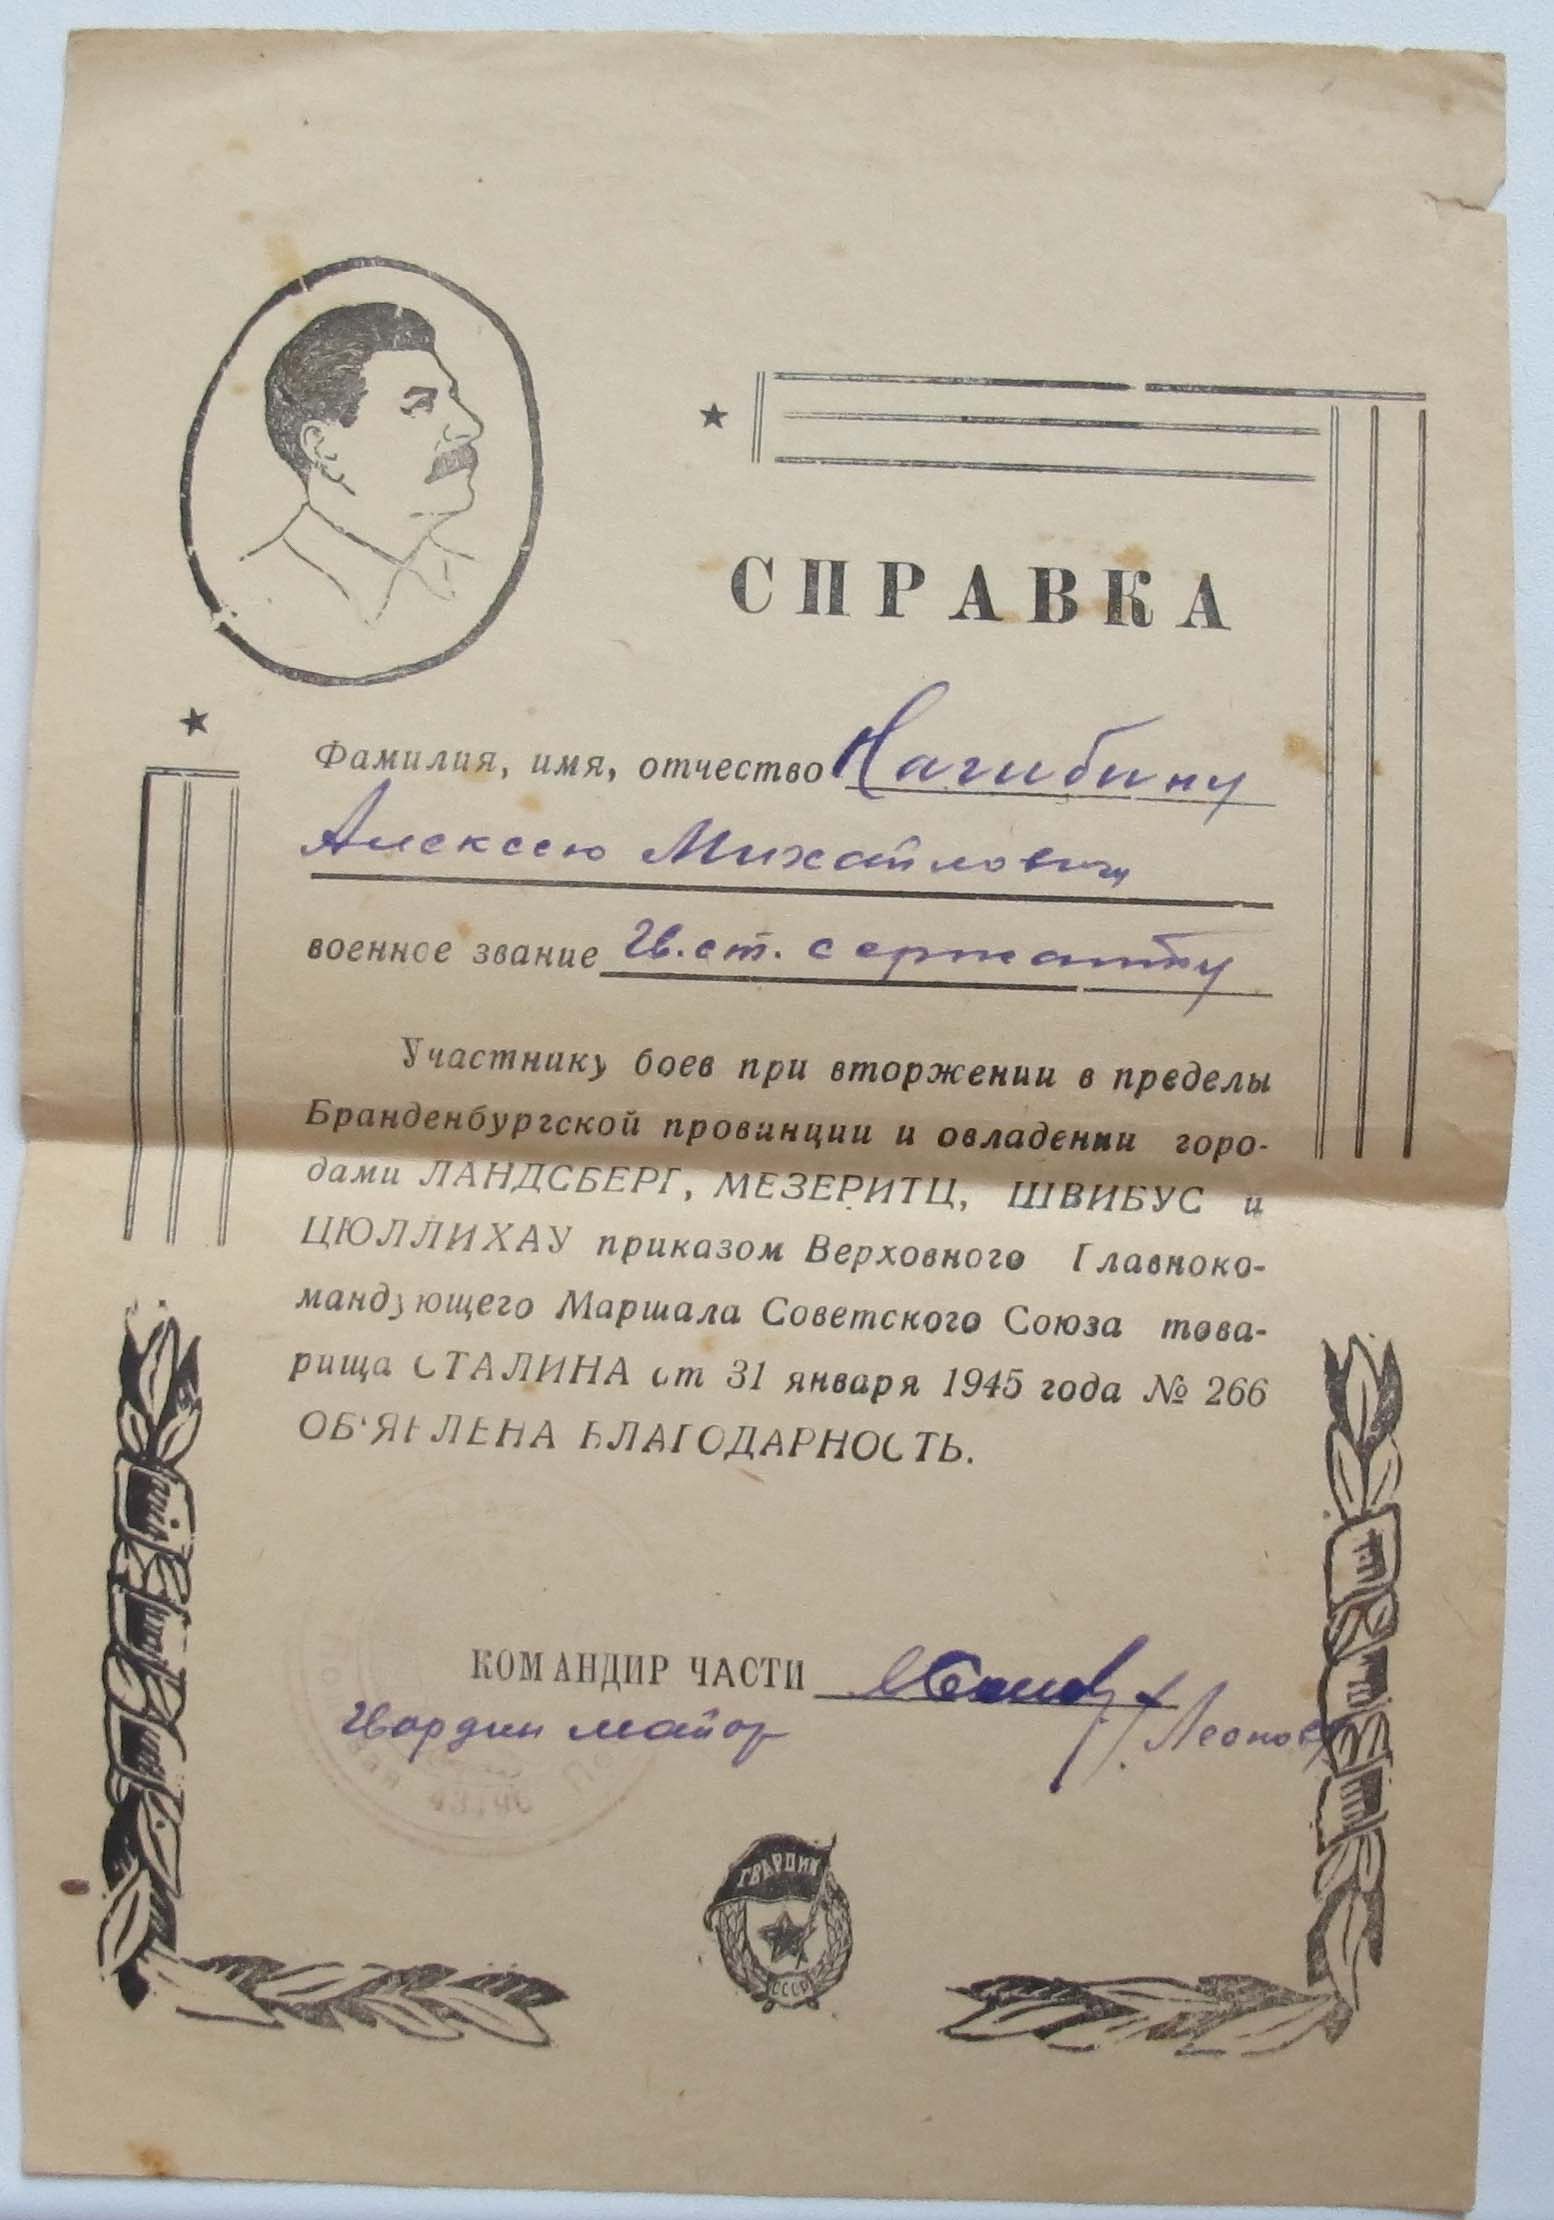 СПРАВКА
Фамилия, имя, отчество Нагибину
Алексею Михайловичу
военное звание Гв. ст. сержанту
Участнику боев при вторжении в пределы
Бранденбургской провинции и овладении горо-
дами ЛАНДСБЕРГ, МЕЗЕРИТЦ, ШВИБУС и
ЦЮЛЛИХАУ приказом Верховного Главноко-
мандующего Маршала Советского Союза това-
рища СТАЛИНА от 31 января 1945 года № 266
ОБ'ЯВЛЕНА БЛАГОДАРНОСТЬ.
КОМАНДИР ЧАСТИ
Гвардии майор Леонов
ГВАРДИЯ
СССР